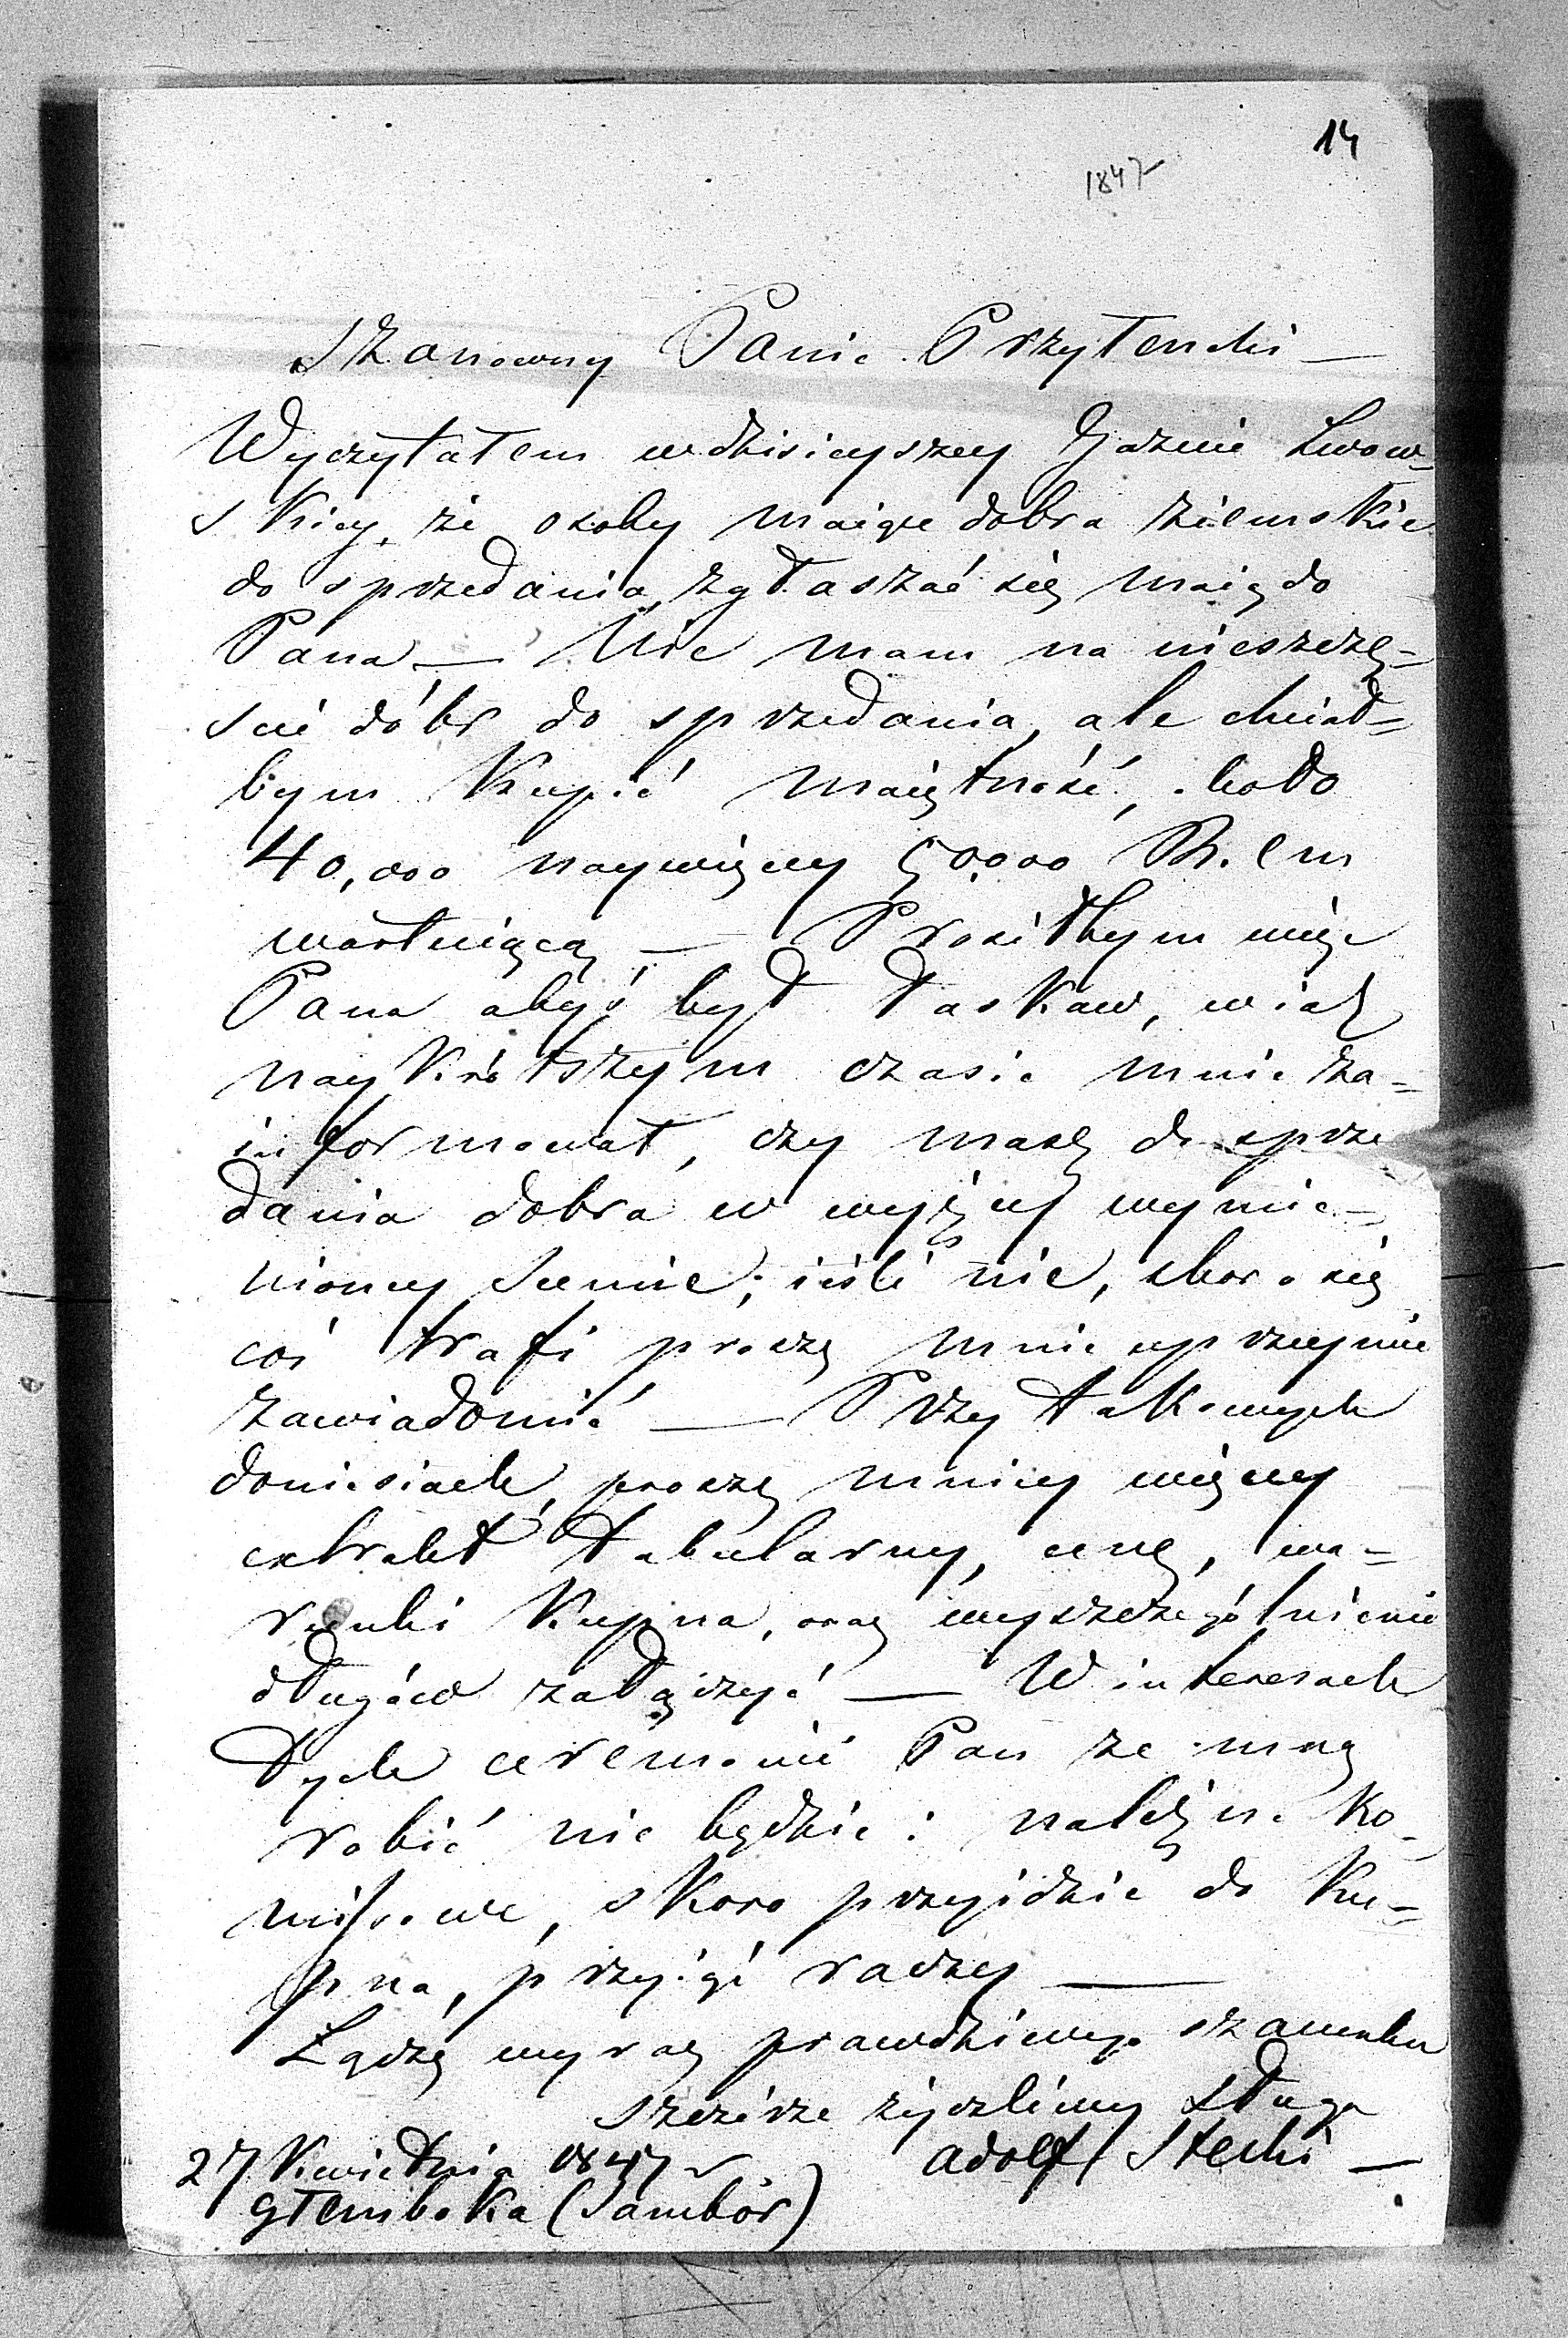 14
1847
Szanowny Panie Przyłenski —
Wyczytałem w dzisieyszey Gazecie Lwow-
skiey, że osoby maiące dobra ziemskie
do sprzedania, zgłaszać się maią do
Pana — Nie mam na nieszczę-
scie dóbr do sprzedania, ale chciał-
bym kupić maiętność, około
40,000 naywięcey 50000 Rh. em
wartuiącą — Prosiłbym więc
Pana abyś był łaskaw, w iak
naykrótszym czasie mnie za-
informował, czy masz do sprze
dania dobra w wyżey wymie-
nioney Sumie; iesli nie, skoro się
coś trafi proszę mnie uprzeymie
zawiadomić — Przy takowych
doniesiach, proszę mniey więcey
extrakt tabularny, cenę, wa-
runki kupna, oraz wyszczególnienie
długów załączyć — W interesach
tych ceremonii Pan ze mną
robić nie będzie: należne ko-
missowe, skoro przyidzie do ku-
pna, przyiąć raczy —
Łączę wyraz prawdziwego szacunku
szczérze życzliwy sługa
27 Kwietnia 1847 r Adolf Stecki —
Głemboka (Sambór)